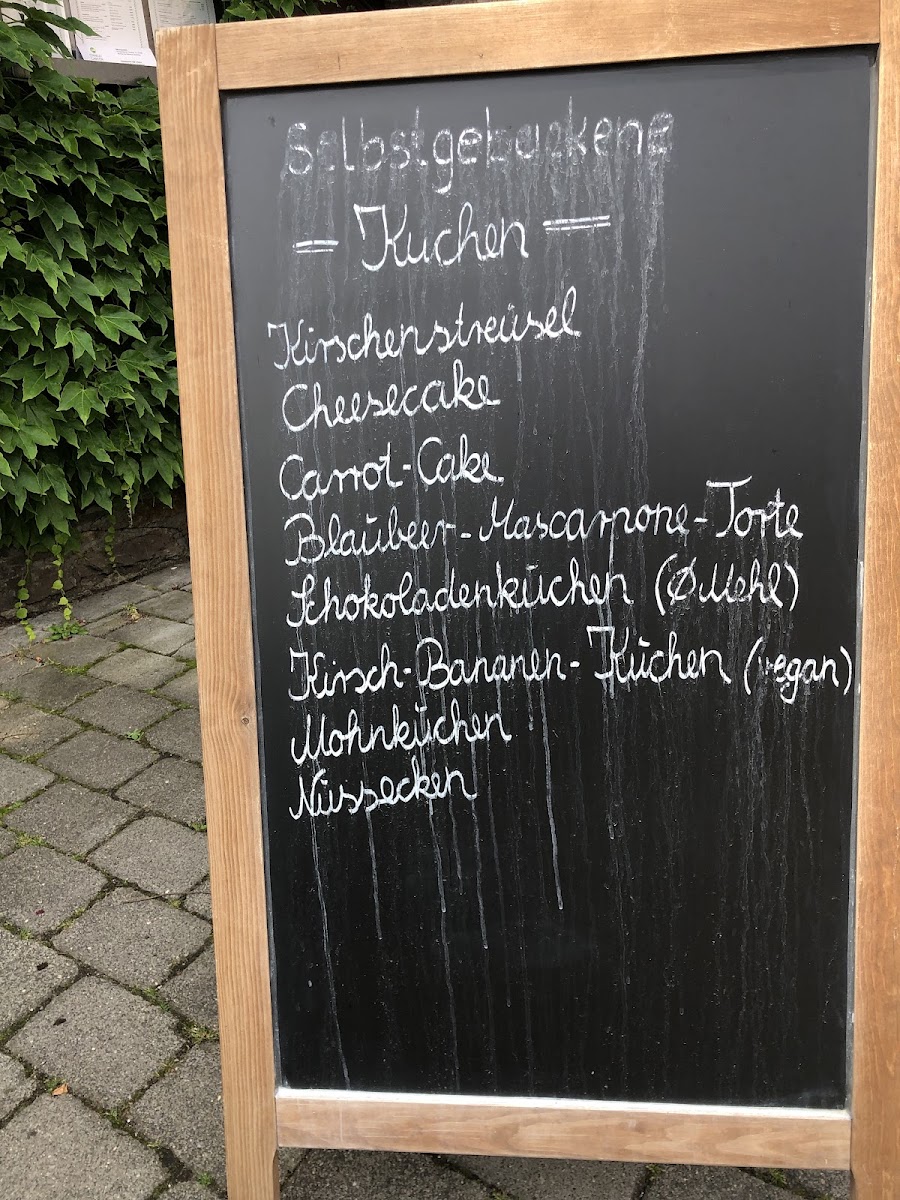 Selbstgebackene
= Kuchen =
Kirschenstreusel
Cheesecake
Carrot-Cake
Blaubeer-Mascarpone-Torte
Schokoladenkuchen (Ø Mehl)
Kirsch-Bananen-Kuchen (vegan)
Mohnkuchen
Nussecken